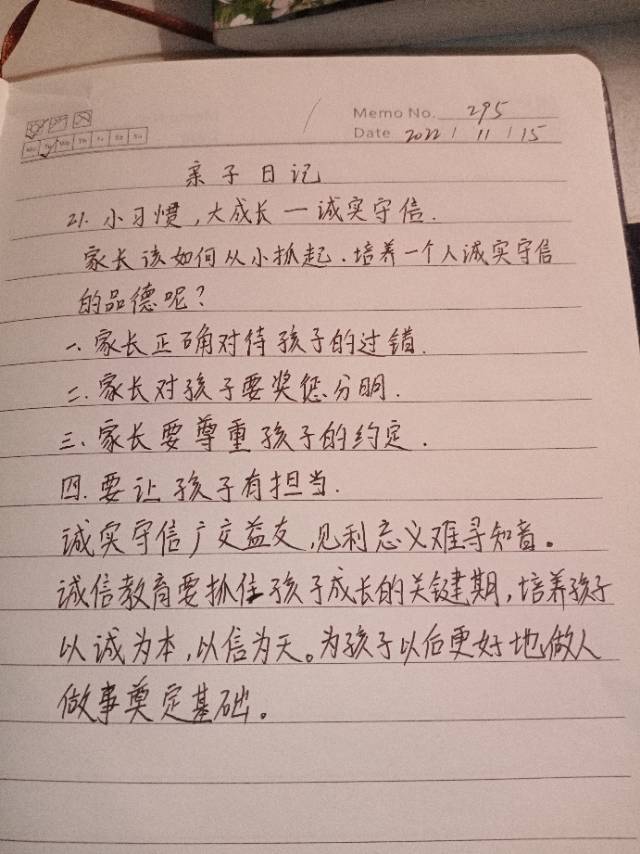 Memo No. 295
Mo Tu We Th Fr Sa Su
Date 2022 / 11 / 15
亲子日记
21. 小习惯，大成长 — 诚实守信.
家长该如何从小抓起.培养一个人诚实守信
的品德呢？
一、家长正确对待孩子的过错.
二.家长对孩子要奖惩分明.
三、家长要尊重孩子的约定.
四.要让孩子有担当.
诚实守信广交益友,见利忘义难寻知音。
诚信教育要抓住孩子成长的关键期,培养孩子
以诚为本,以信为天。为孩子以后更好地做人
做事奠定基础。